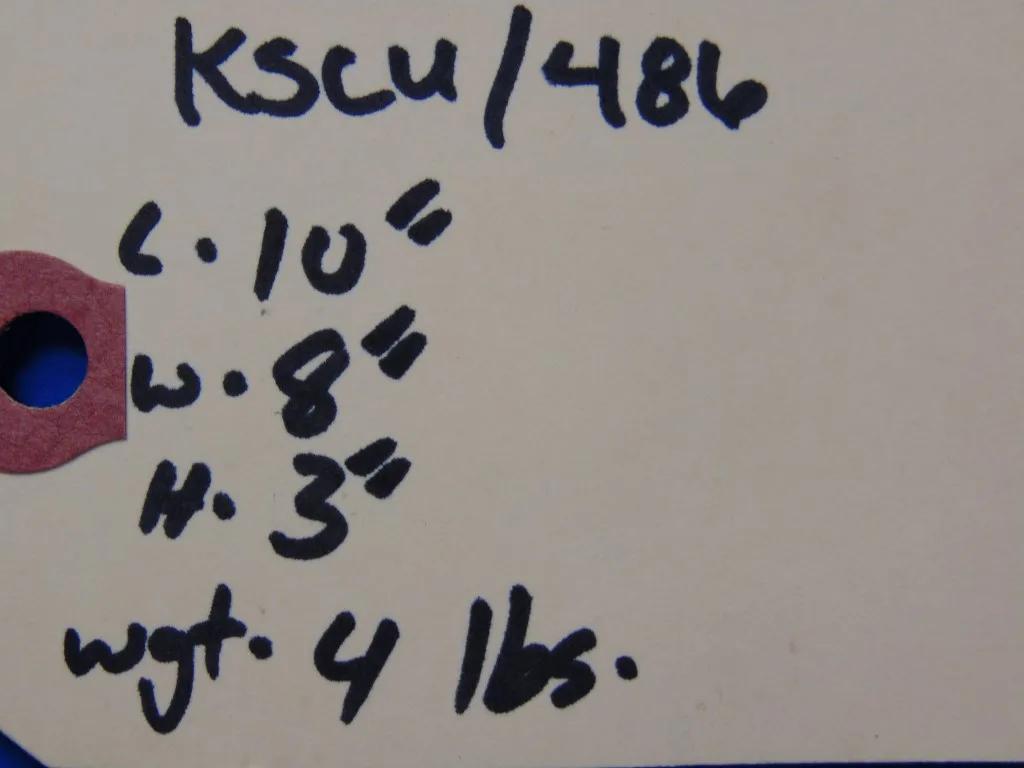 KSCU/486
L. 10"
W. 8"
H. 3"
wgt. 4 lbs.